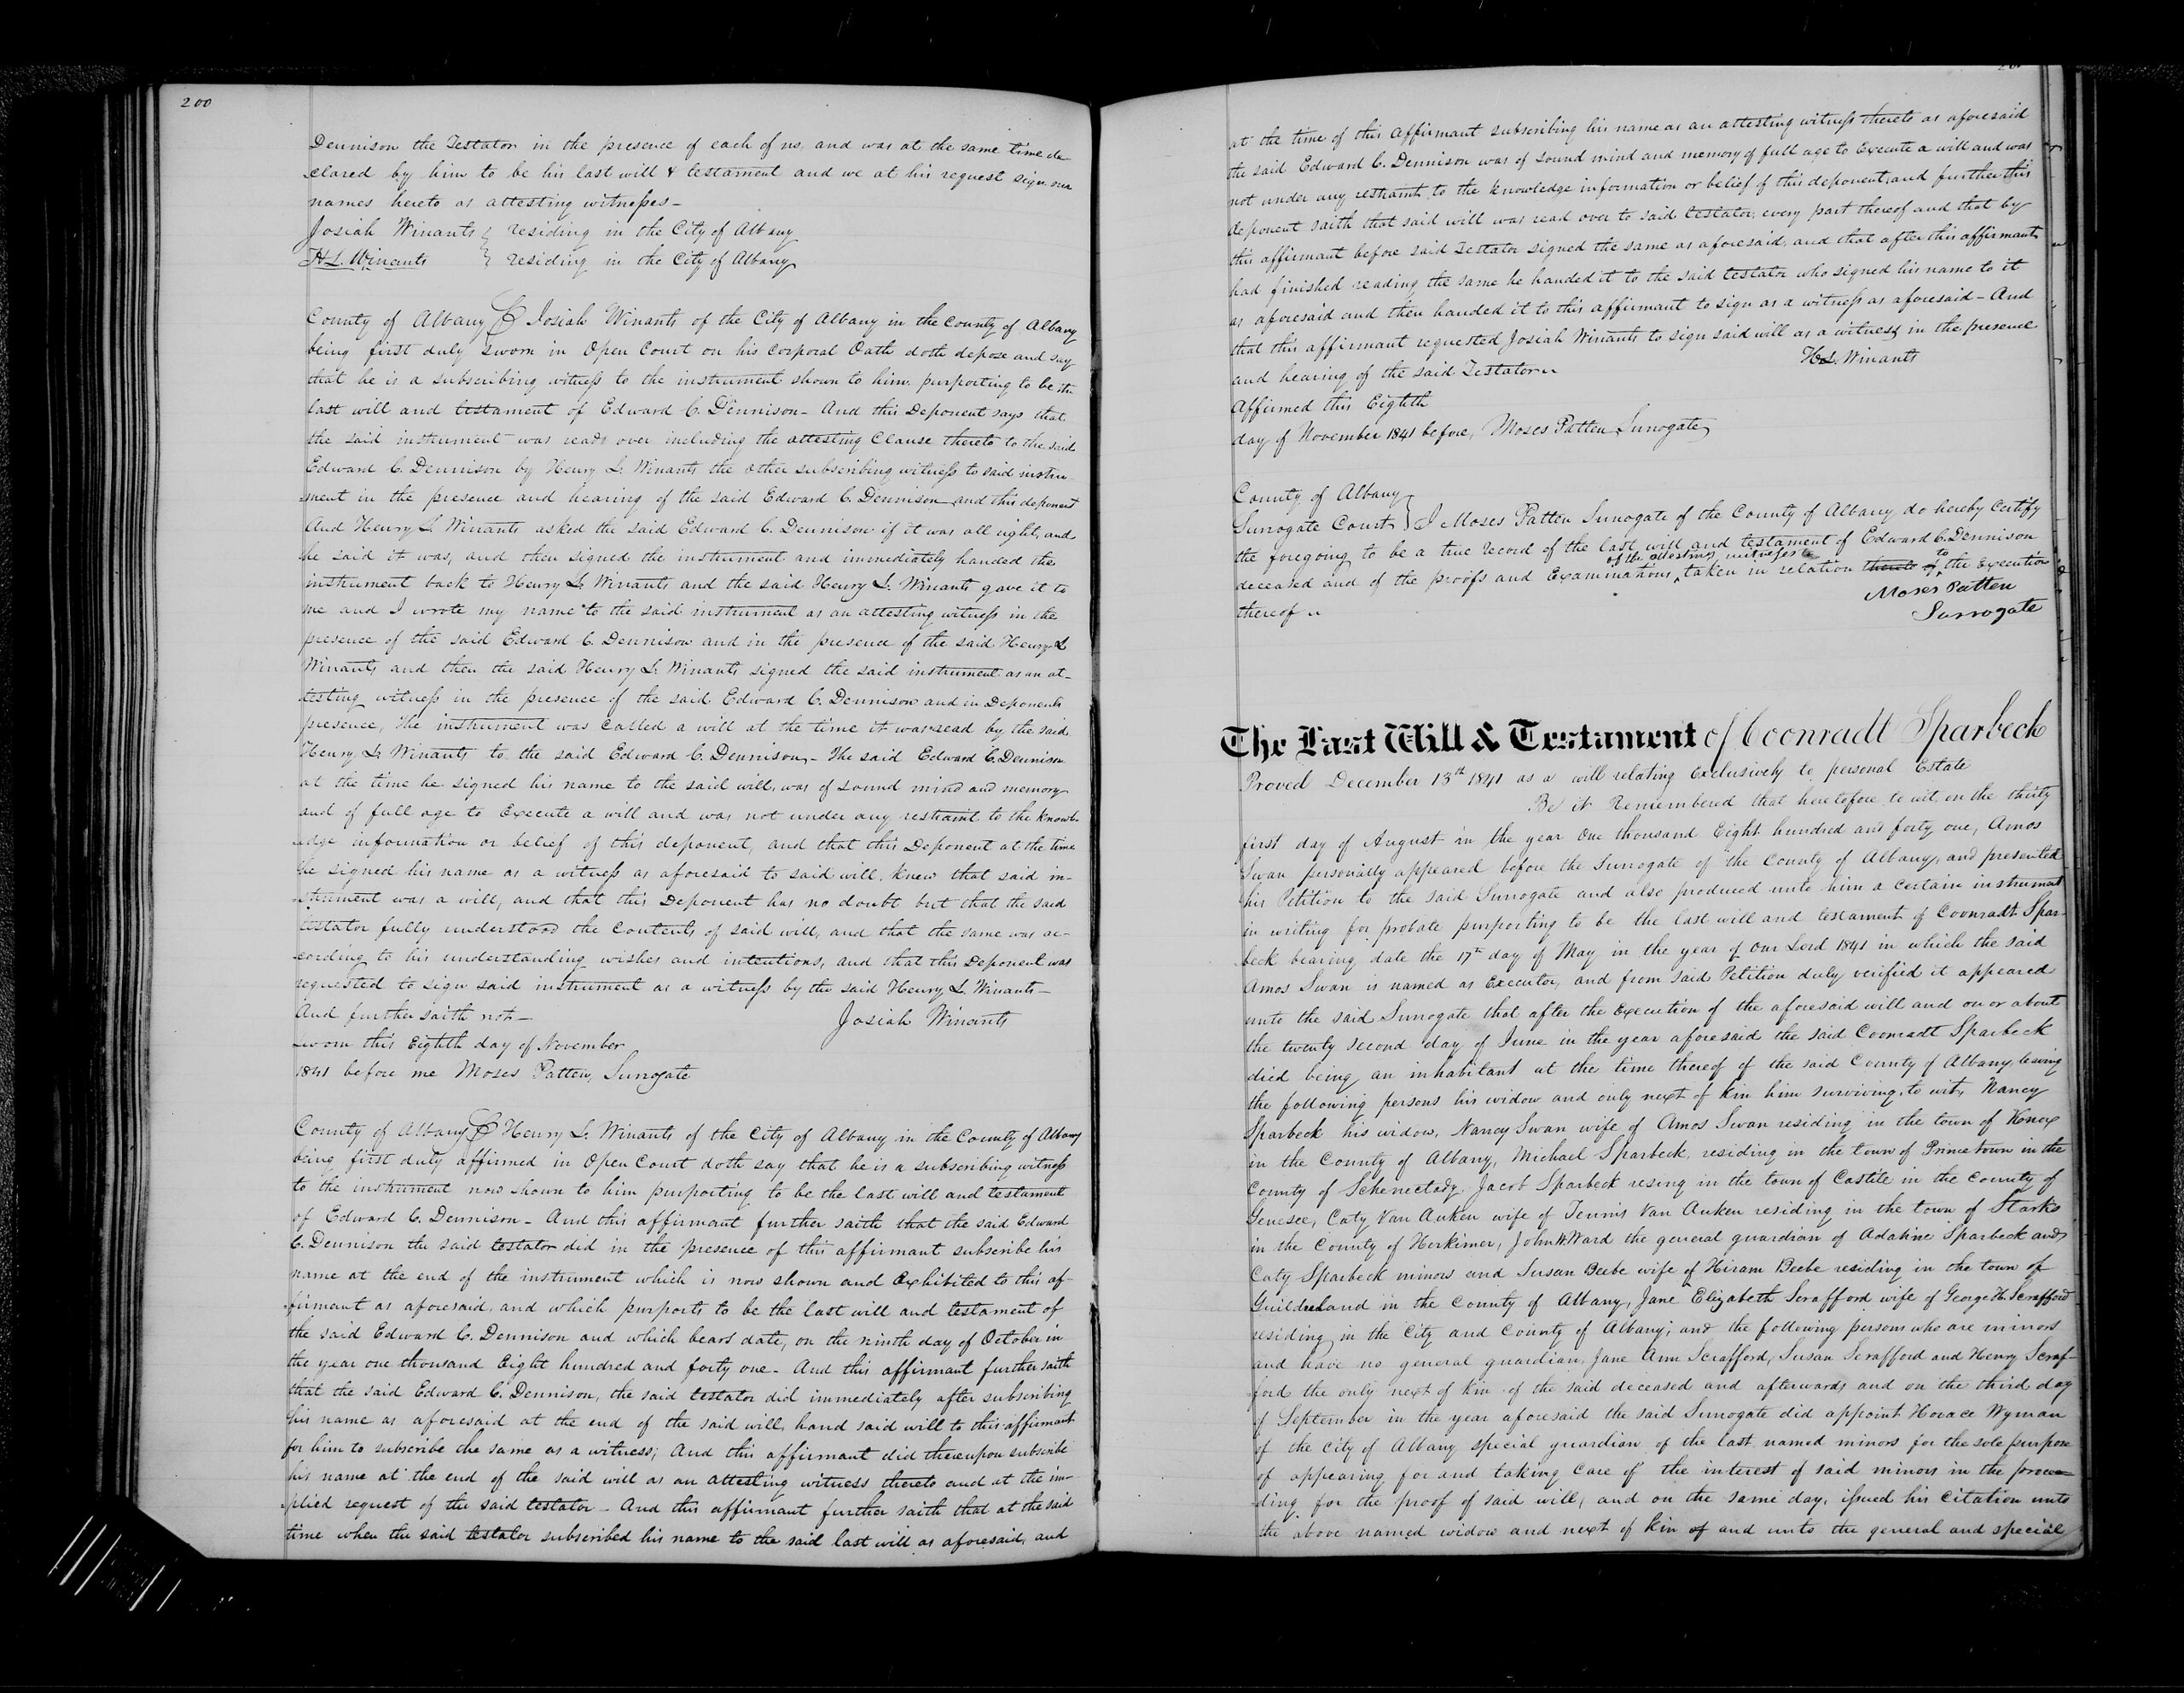 200
Dennison the Testator in the presence of each of us, and was at the same time de-
clared by him to be his last will & testament and we at his request sign our
names hereto as attesting witnesses -
Josiah Winants } residing in the City of Albany
H L. Winants } residing in the City of Albany
County of Albany SS Josiah Winants of the City of Albany in the County of Albany
being first duly sworn in Open Court on his Corporal Oath doth depose and say
that he is a subscribing witness to the instrument shown to him purporting to be the
last will and testament of Edward C. Dennison - And this Deponent says that
the said instrument was read over including the attesting Clause thereto to the said
Edward C. Dennison by Henry L. Winants the other subscribing witness to said instru-
-ment in the presence and hearing of the said Edward C. Dennison and this deponent
And Henry L. Winants asked the said Edward C. Dennison if it was all right, and
he said it was, and then signed the instrument and immediately handed the
instrument back to Henry L. Winants and the said Henry L. Winants gave it to
me and I wrote my name to the said instrument as an attesting witness in the
presence of the said Edward C. Dennison and in the presence of the said Henry L
Winants and then the said Henry L. Winants signed the said instrument as an at-
testing witness in the presence of the said Edward C. Dennison and in Deponents
presence, the instrument was called a will at the time it was read by the said
Henry L. Winants to the said Edward C. Dennison - The said Edward C. Dennison
at the time he signed his name to the said will, was of sound mind and memory
and of full age to Execute a will and was not under any restraint to the knowl-
-edge information or belief of this deponent, and that this Deponent at the time
he signed his name as a witness as aforesaid to said will, knew that said in-
-strument was a will, and that this Deponent has no doubt but that the said
testator fully understood the Contents of said will, and that the same was ac-
-cording to his understanding wishes and intentions, and that this Deponent was
requested to sign said instrument as a witness by the said Henry L. Winants -
And further saith not - Josiah Winants
Sworn this Eighth day of November
1841 before me Moses Patten, Surrogate
County of Albany SS Henry L. Winants of the City of Albany in the County of Albany
being first duly affirmed in Open Court doth say that he is a subscribing witness
to the instrument now shown to him purporting to be the last will and testament
of Edward C. Dennison - And this affirmant further saith that the said Edward
C. Dennison the said testator did in the presence of this affirmant subscribe his
name at the end of the instrument which is now shown and Exhibited to this af-
-firmant as aforesaid, and which purports to be the last will and testament of
the said Edward C. Dennison and which bears date, on the ninth day of October in
the year one thousand Eight hundred and forty one - And this affirmant further saith
that the said Edward C. Dennison, the said testator did immediately after subscribing
his name as aforesaid at the end of the said will, hand said will to this affirmant
for him to subscribe the same as a witness; And this affirmant did thereupon subscribe
his name at the end of the said will as an attesting witness thereto and at the im-
-plied request of the said testator - And this affirmant further saith that at the said
time when the said testator subscribed his name to the said last will as aforesaid, and
at the time of this affirmant subscribing his name as an attesting witness thereto as aforesaid
the said Edward C. Dennison was of sound mind and memory of full age to Execute a will and was
not under any restraint to the knowledge information or belief of this deponent, and further this
deponent saith that said will was read over to said testator, every part thereof and that by
this affirmant before said Testator signed the same as aforesaid, and that after this affirmant
had finished reading the same he handed it to the said testator who signed his name to it
as aforesaid and then handed it to this affirmant to sign as a witness as aforesaid - And
that this affirmant requested Josiah Winants to sign said will as a witness in the presence
and hearing of the said Testator H L. Winants
Affirmed this Eighth
day of November 1841 before, Moses Patten Surrogate
County of Albany }
Surrogate Court } I Moses Patten Surrogate of the County of Albany do hereby Certify
the foregoing to be a true record of the last will and testament of Edward C. Dennison
deceased and of the proofs and Examinations of the attesting witnesses taken in relation thereto of to the Execution
thereof Moses Patten
Surrogate
The Last Will & Testament of Coonradt Sparbeck
Proved December 13th 1841 as a will relating Exclusively to personal Estate
Be it Remembered that heretofore to wit, on the thirty
first day of August in the year One thousand Eight hundred and forty one, Amos
Swan personally appeared before the Surrogate of the County of Albany, and presented
his Petition to the said Surrogate and also produced unto him a certain instrument
in writing for probate purporting to be the last will and testament of Coonradt Spar-
beck bearing date the 17th day of May in the year of our Lord 1841 in which the said
Amos Swan is named as Executor, and from said Petition duly verified it appeared
unto the said Surrogate that after the Execution of the aforesaid will and on or about
the twenty second day of June in the year aforesaid the said Coonradt Sparbeck
died being an inhabitant at the time thereof of the said County of Albany, leaving
the following persons his widow and only next of kin him surviving, to wit, Nancy
Sparbeck his widow, Nancy Swan wife of Amos Swan residing in the town of Knox
in the County of Albany, Michael Sparbeck residing in the town of Princetown in the
County of Schenectady. Jacob Sparbeck resing in the town of Castile in the County of
Genesee, Caty Van Auken wife of Teunis Van Auken residing in the town of Starks
in the County of Herkimer, John W. Ward the general guardian of Adaline Sparbeck and
Caty Sparbeck minors and Susan Beebe wife of Hiram Beebe residing in the town of
Guilderland in the County of Albany, Jane Elizabeth Scrafford wife of George H. Scrafford
residing in the City and County of Albany; and the following persons who are minors
and have no general guardian, Jane Ann Scrafford, Susan Scrafford and Henry Scraf-
ford the only next of kin of the said deceased and afterwards and on the third day
of September in the year aforesaid the said Surrogate did appoint Horace Wyman
of the City of Albany special guardian of the last named minors for the sole purpose
of appearing for and taking Care of the interest of said minors in the procee-
ding for the proof of said will, and on the same day, issued his Citation unto
the above named widow and next of kin of and unto the general and special